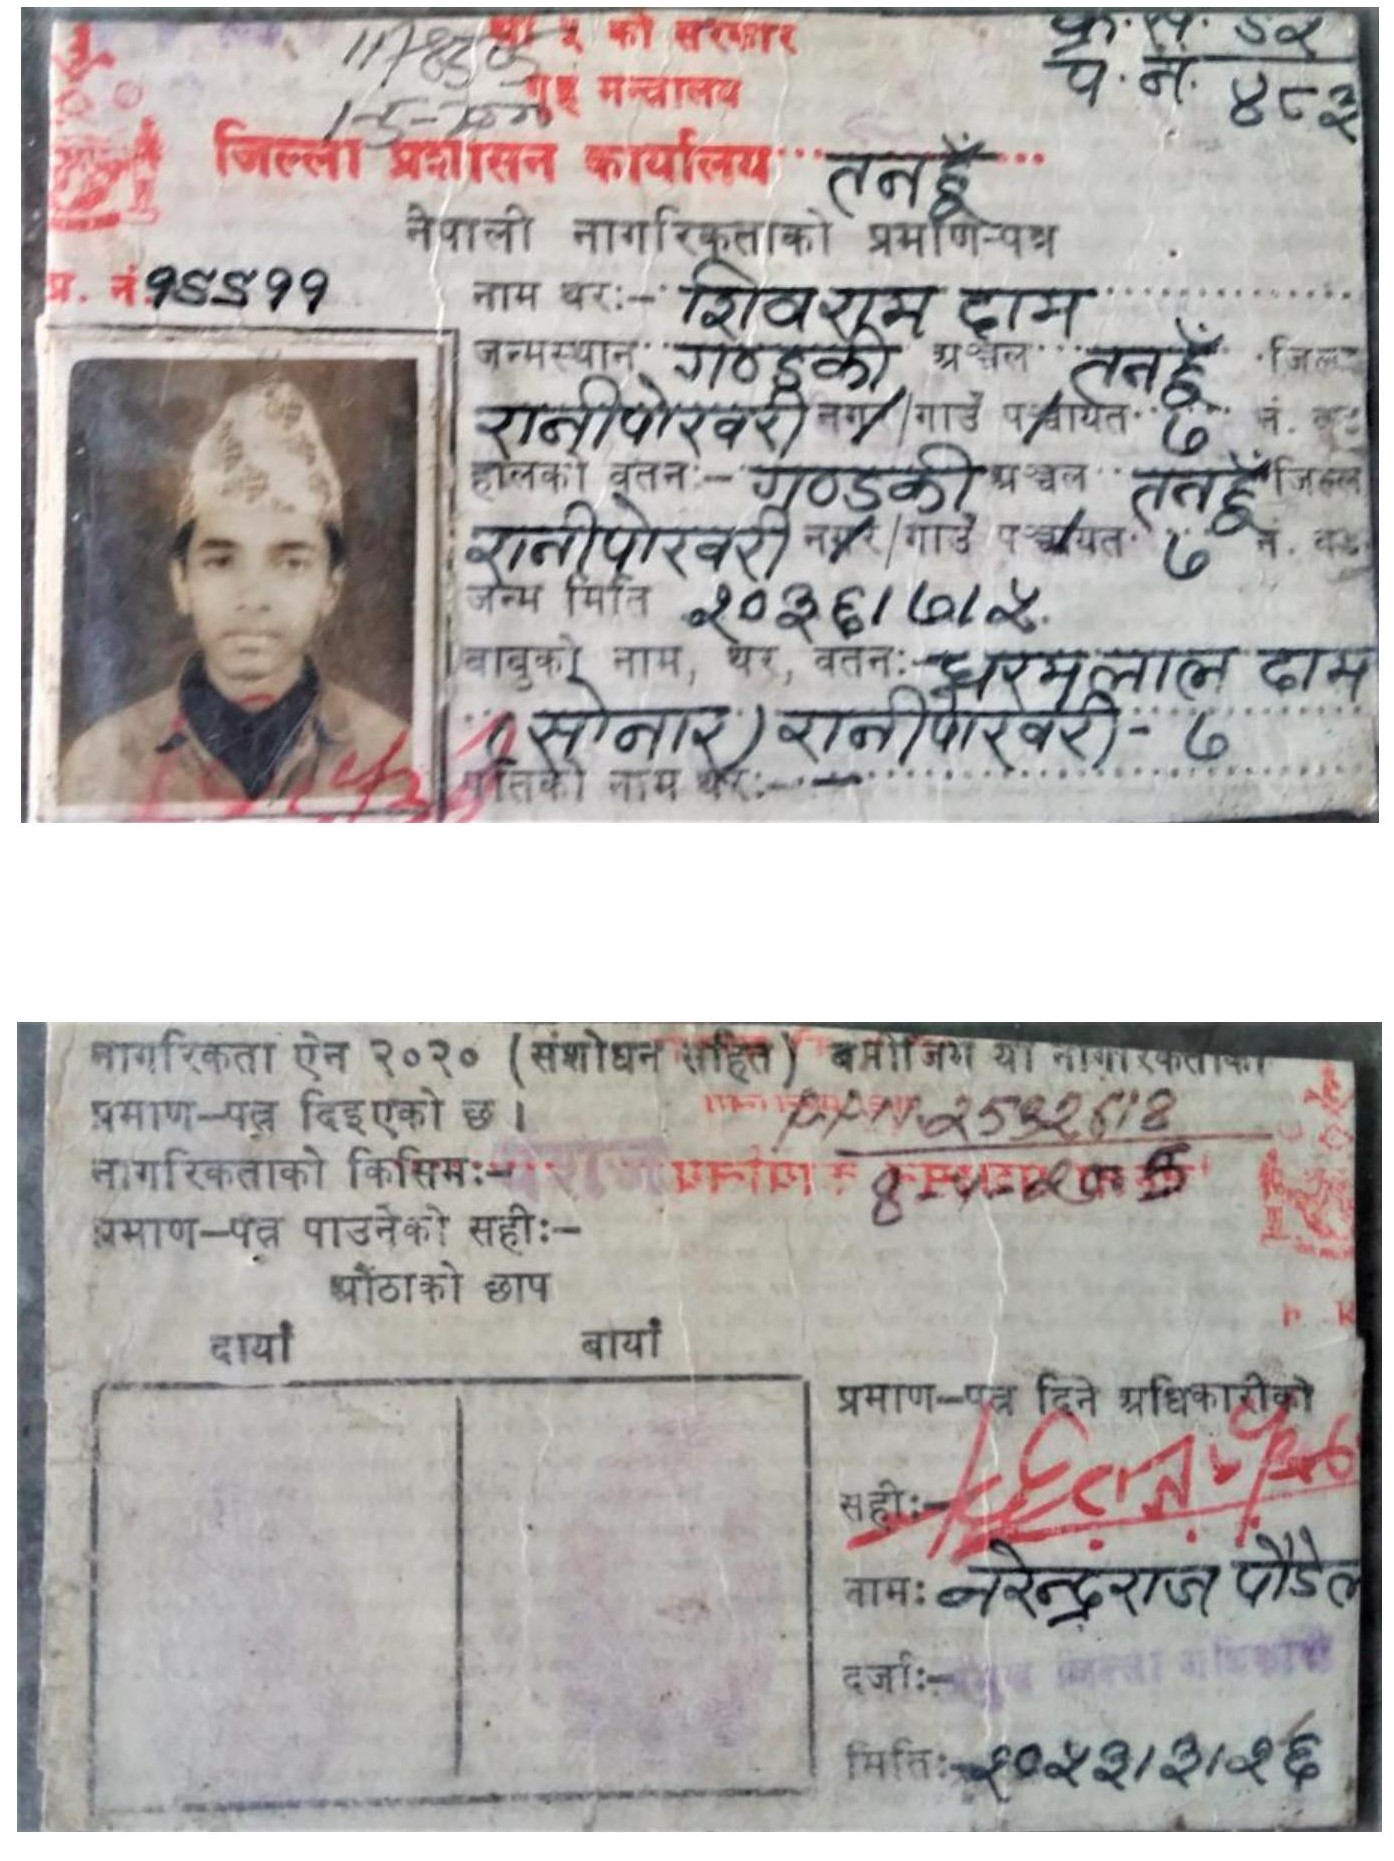 क्र.सं. ८२
प. नं. ४८३
श्री ५ को सरकार
गृह मन्त्रालय
जिल्ला प्रशासन कार्यालय तनहुँ
नेपाली नागरिकताको प्रमाण-पत्र
प्र. नं.
नाम थर:- शिवराम दाम
जन्मस्थान गण्डकी अञ्चल तनहुँ जिल्ला
रानीपोखरी नगर/गाउँ पञ्चायत ७ नं. वडा
हालको वतन:- गण्डकी अञ्चल तनहुँ जिल्ला
रानीपोखरी नगर/गाउँ पञ्चायत ७ नं. वडा
जन्म मिति २०३६।७।५
बाबुको नाम, थर, वतन:- धरमलाल दाम
(सोनार) रानीपोखरी- ७
पतिको नाम थर:- -
नागरिकता ऐन २०२० (संशोधन सहित) बमोजिम यो नागरिकताको
प्रमाण-पत्र दिइएको छ ।
नागरिकताको किसिम:- वंशज
प्रमाण-पत्र पाउनेको सही:-
औंठाको छाप
दायाँ बायाँ
प्रमाण-पत्र दिने अधिकारीको
सही:-
नाम: नरेन्द्रराज पौडेल
दर्जा:- प्रमुख जिल्ला अधिकारी
मिति:- २०५३।३।२६